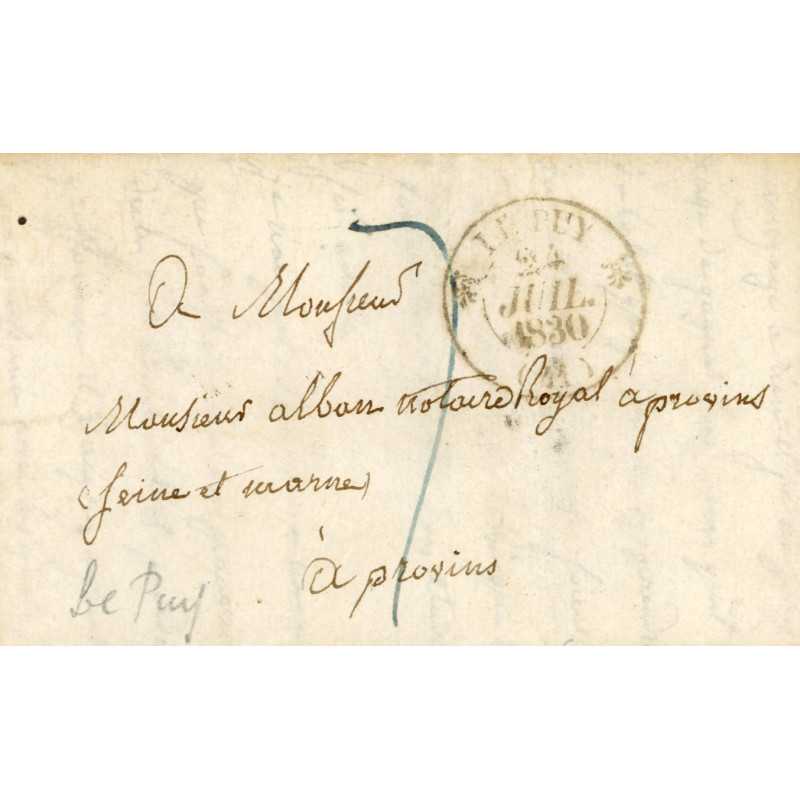 LE PUY
24
JUIL.
1830
(41)
7
A Monsieur
Monsieur alban notaire Royal à provins
(seine et marne)
à provins
Le Puy